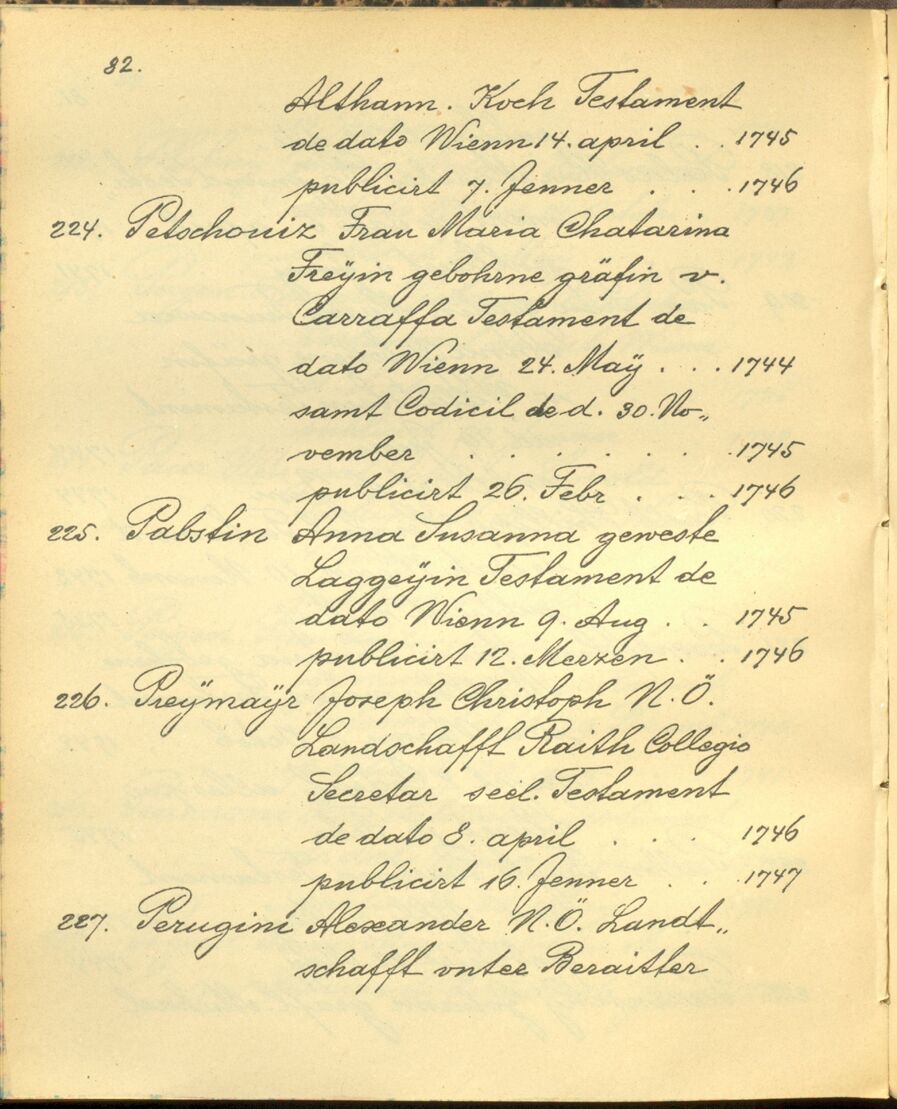 82.
Althann. Koch Testament
de dato Wienn 14. april . . 1745
publicirt 7. Jenner . . . 1746
224. Petschouiz Frau Maria Chatarina
Freÿin gebohrne gräfin v.
Carraffa Testament de
dato Wienn 24. Maÿ . . . 1744
samt Codicil de d. 30. No„
vember . . . . . . . 1745
publicirt 26. Febr . . . 1746
225. Pabstin Anna Susanna geweste
Laggeÿin Testament de
dato Wienn 9. Aug . . 1745
publicirt 12. Merzen . . 1746
226. Preÿmaÿr Joseph Christoph N. Ö.
Landschafft Raith Collegio
Secretar seel. Testament
de dato 8. april . . . 1746
publicirt 16. Jenner . . . 1747
227. Perugini Alexander N. Ö. Landt„
schafft vnter Beraitter